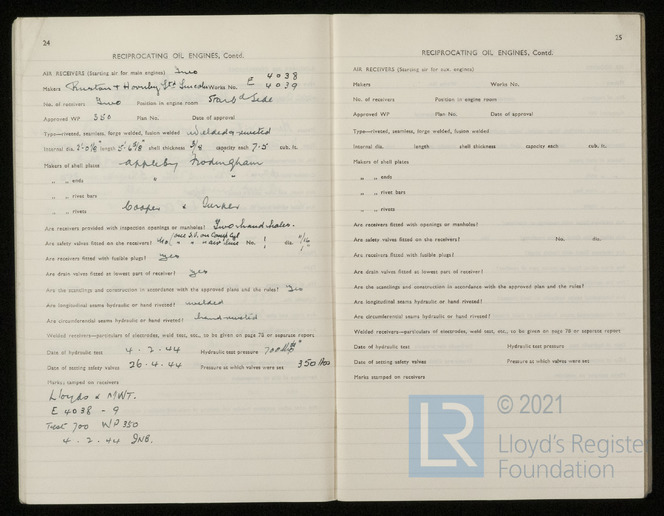 24
RECIPROCATING OIL ENGINES, Contd.
AIR RECEIVERS (Starting air for main engines) Two
Makers Ruston & Hornby Ltd Lincoln Works No. E 4038
4039
No. of receivers Two Position in engine room Starb'd Side
Approved WP 350 Plan No. Date of approval
Type—riveted, seamless, forge welded, fusion welded Welded & riveted
Internal dia. 2'-0⅝" length 5'-6⅝" shell thickness ⅝ capacity each 7.5 cub. ft.
Makers of shell plates Appleby Frodingham
„ „ ends " "
„ „ rivet bars
„ „ rivets Cooper & Turner
Are receivers provided with inspection openings or manholes? Two handholes.
Are safety valves fitted on the receivers? No. 1 dia.
Are receivers fitted with fusible plugs? Yes
Are drain valves fitted at lowest part of receiver? Yes
Are the scantlings and construction in accordance with the approved plans and the rules? Yes
Are longitudinal seams hydraulic or hand riveted? welded
Are circumferential seams hydraulic or hand riveted? hand riveted
Welded receivers—particulars of electrodes, weld test, etc., to be given on page 78 or separate report
Date of hydraulic test 4.2.44 Hydraulic test pressure 700
Date of setting safety valves 26.4.44 Pressure at which valves were set 350 lbs
Marks stamped on receivers
Lloyds & MWT.
E 4038 - 9
Test 700 WP 350
4.2.44 JNB.
25
RECIPROCATING OIL ENGINES, Contd.
AIR RECEIVERS (Starting air for aux. engines)
Makers Works No.
No. of receivers Position in engine room
Approved WP Plan No. Date of approval
Type—riveted, seamless, forge welded, fusion welded
Internal dia. length shell thickness capacity each cub. ft.
Makers of shell plates
„ „ ends
„ „ rivet bars
„ „ rivets
Are receivers fitted with openings or manholes?
Are safety valves fitted on the receivers? No. dia.
Are receivers fitted with fusible plugs?
Are drain valves fitted at lowest part of receiver?
Are the scantlings and construction in accordance with the approved plan and the rules?
Are longitudinal seams hydraulic or hand riveted?
Are circumferential seams hydraulic or hand riveted?
Welded receivers—particulars of electrodes, weld test, etc., to be given on page 78 or separate report
Date of hydraulic test Hydraulic test pressure
Date of setting safety valves Pressure at which valves were set
Marks stamped on receivers
LR
© 2021
Lloyd's Register
Foundation